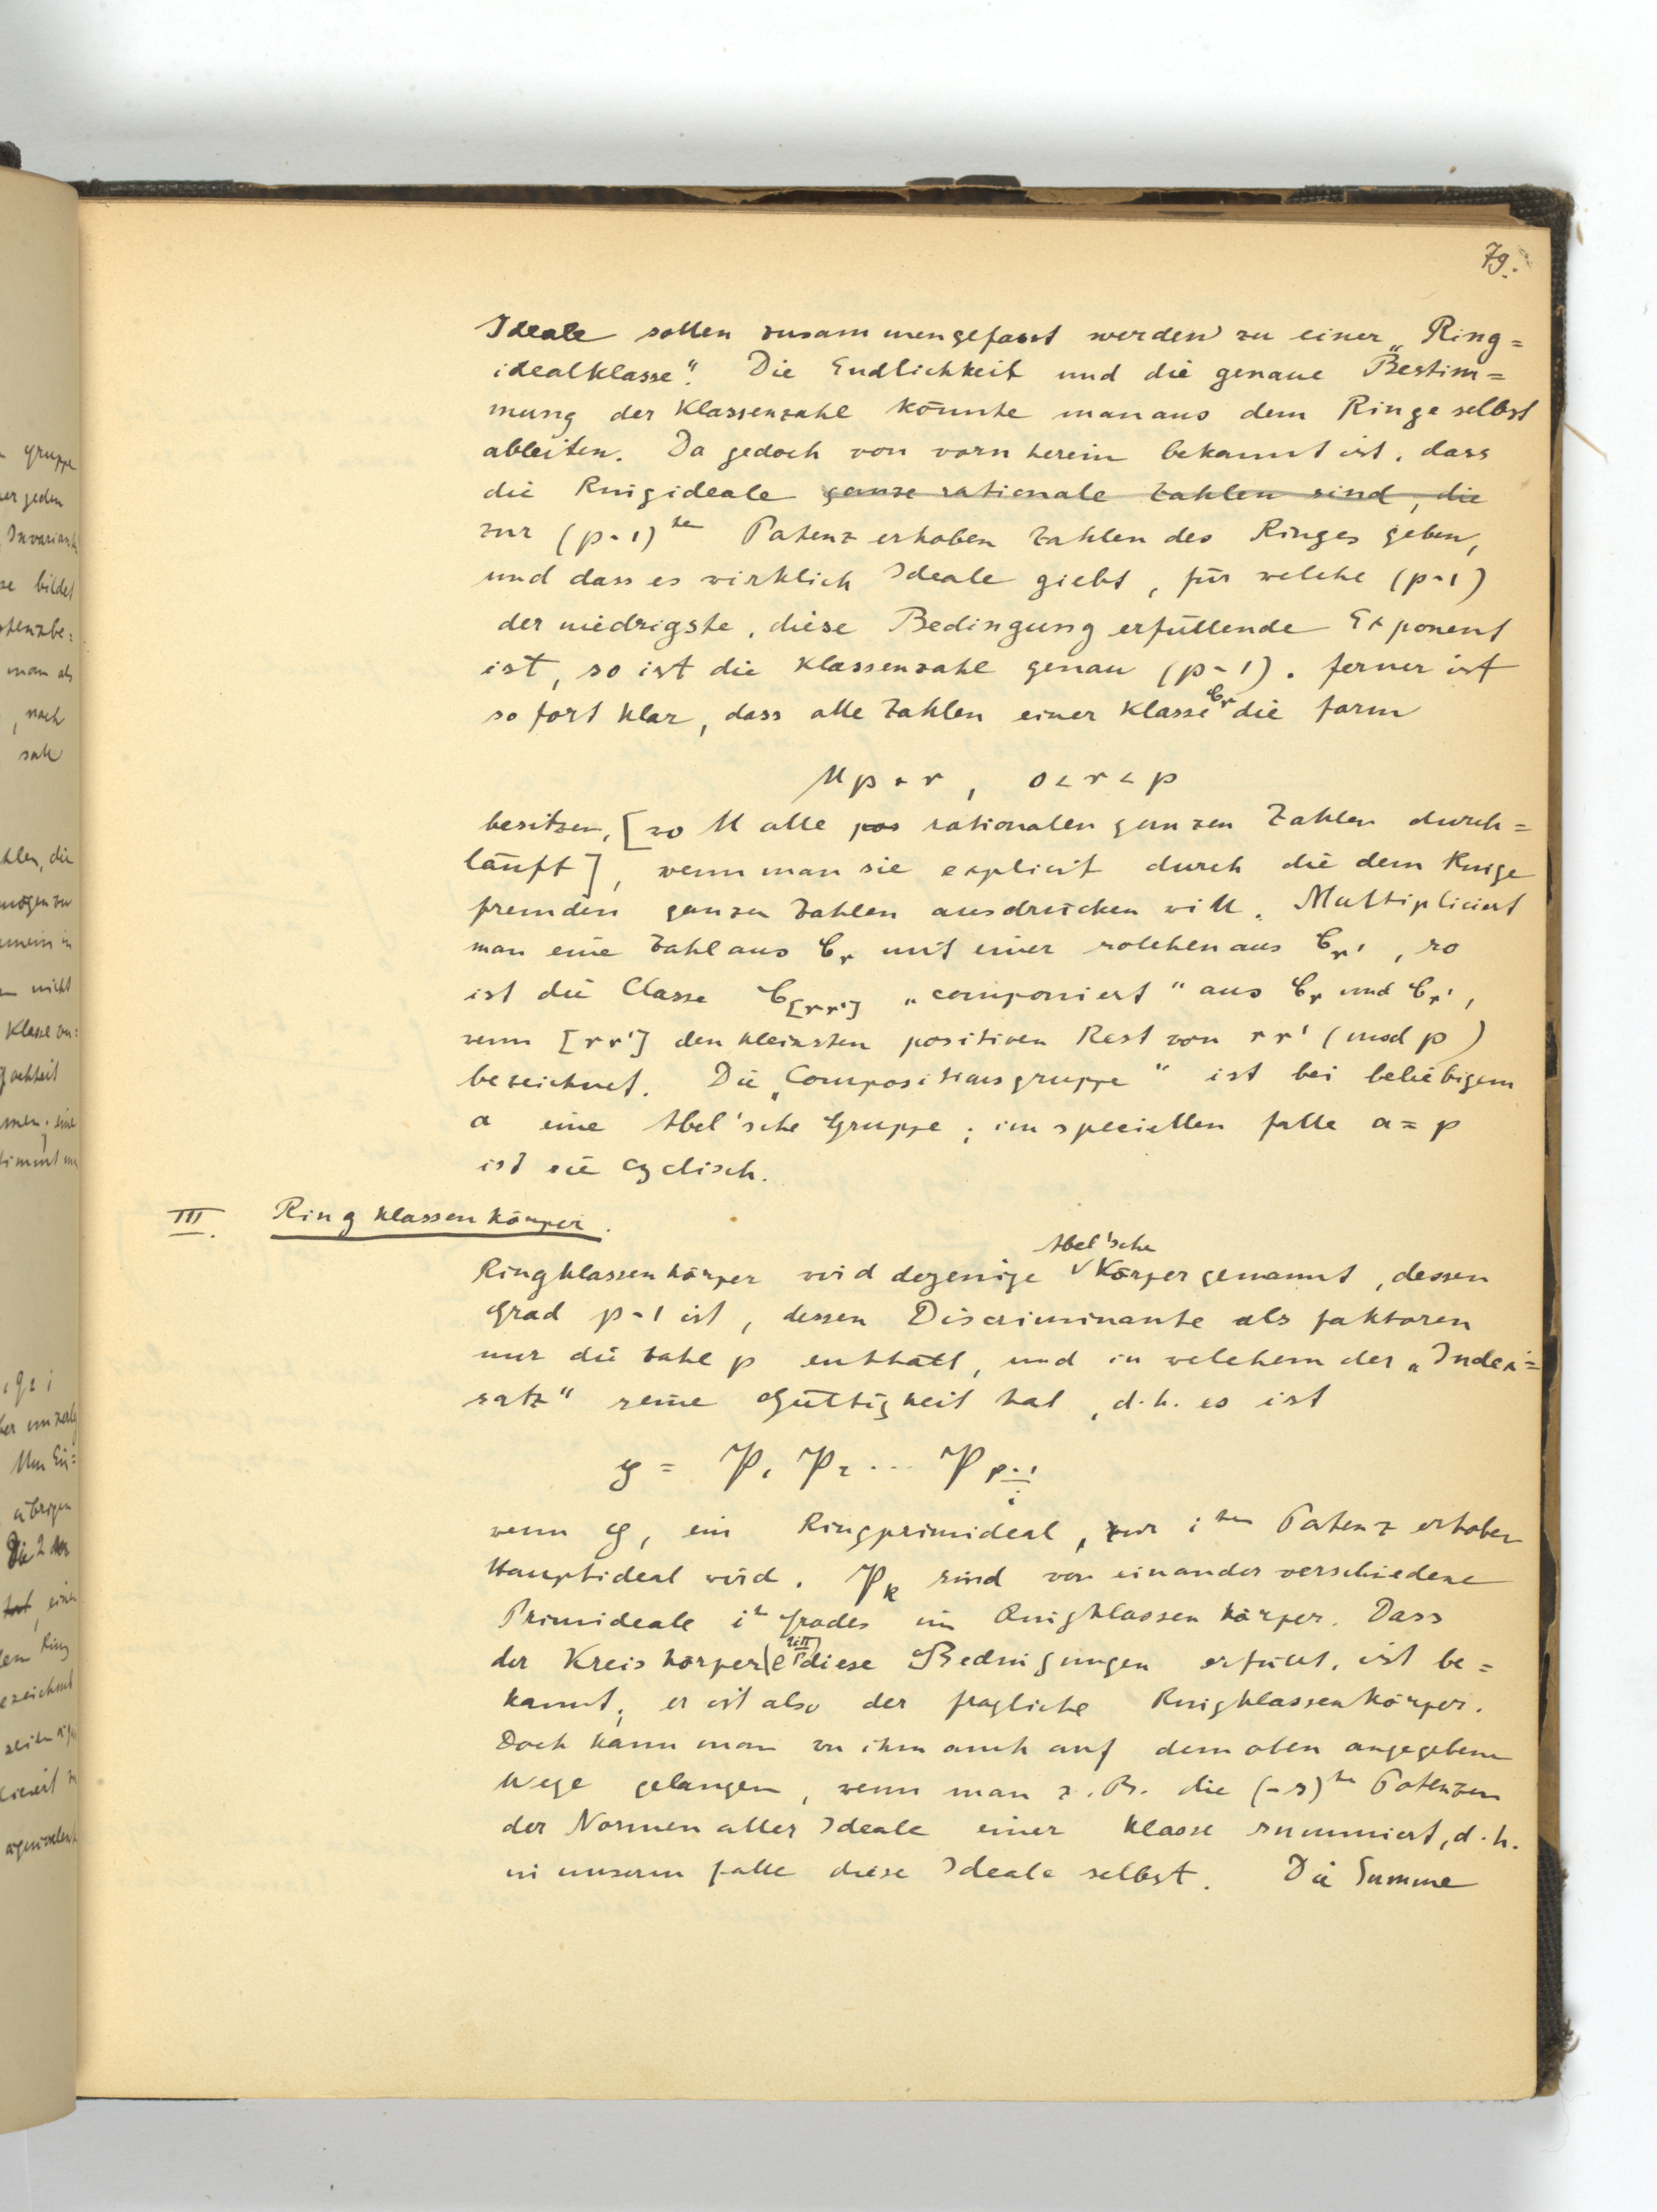 79.
Ideale sollen zusammengefasst werden zu einer „Ring=
idealklasse“. Die Endlichkeit und die genaue Bestim=
mung der Klassenzahl könnte man aus dem Ringe selbst
ableiten. Da gedoch von vorn herein bekannt ist, dass
die Ringideale ganze rationale Zahlen sind, die
zur (p-1)ten Potenz erhoben Zahlen des Ringes geben,
und dass es wirklich Ideale giebt, für welche (p-1)
der niedrigste, diese Bedingung erfüllende Exponent
ist, so ist die Klassenzahl genau (p-1). Ferner ist
sofort klar, dass alle Zahlen einer Klasse C_r die Form
Mp+r, 0<r<p
besitzen, [wo M alle pos rationalen ganzen Zahlen durch=
läuft], wenn man sie explicit durch die dem Ringe
fremden ganzen Zahlen ausdrücken will. Multipliciert
man eine Zahl aus C_r mit einer solchen aus C_r', so
ist die Classe C_[rr'] „componiert“ aus C_r und C_r',
wenn [rr'] den kleinsten positiven Rest von rr' (mod p)
bezeichnet. Die „Compositionsgruppe“ ist bei beliebigem
a eine Abel'sche Gruppe; im speciellen Falle a = p
ist sie cyclisch.
III. Ringklassenkörper.
Ringklassenkörper wird dejenige Abel'sche Körper genannt, dessen
Grad p-1 ist, dessen Discriminante als Faktoren
nur die Zahl p enthält, und in welchem der „Index=
satz“ seine Gültigkeit hat, d.h. es ist
y = P_1 P_2 ... P_{p-1/i}
wenn y, ein Ringprimideal, zur iten Potenz erhoben
Hauptideal wird. P_k sind von einander verschiedene
Primideale in Grades im Ringklassenkörper. Dass
der Kreiskörper (e^{2iπ/p}) diese Bedingungen erfüllt, ist be=
kannt; er ist also der fragliche Ringklassenkörper.
Doch kann man zu ihm auch auf dem oben angegebenen
Wege gelangen, wenn man z.B. die (-s)ten Potenzen
der Normen aller Ideale einer Klasse summiert, d.h.
in unserm Falle diese Ideale selbst. Die Summe